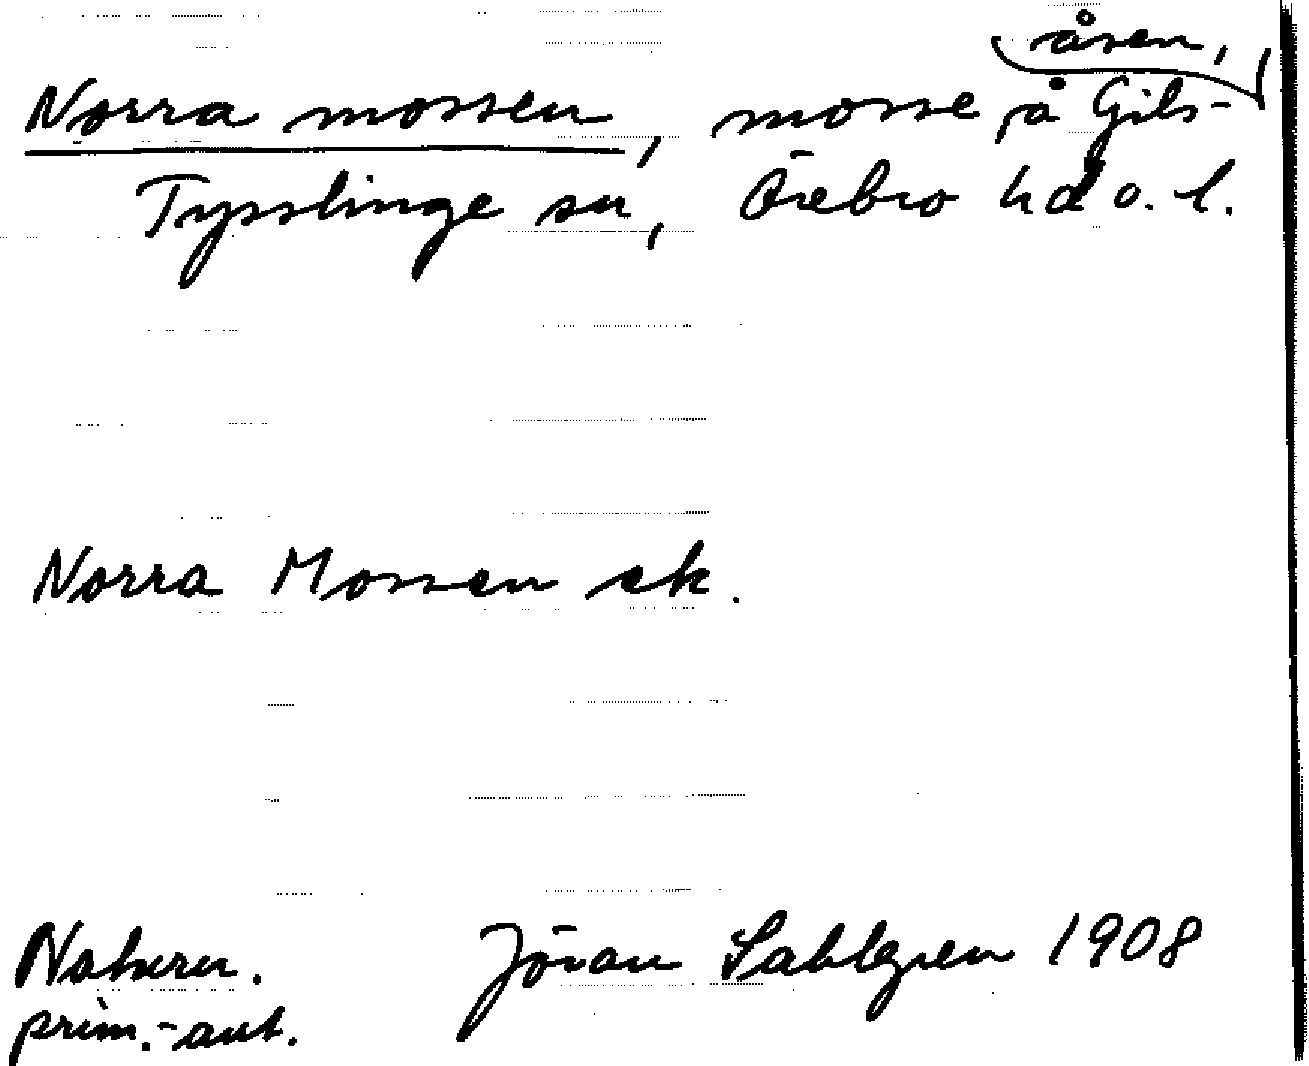 Norra mossen, mosse på Gils-
åsen,
Tysslinge sn, Örebro hd o. l.
Norra Mossen ek.
Naturn. Jöran Sahlgren 1908
prim.-ant.